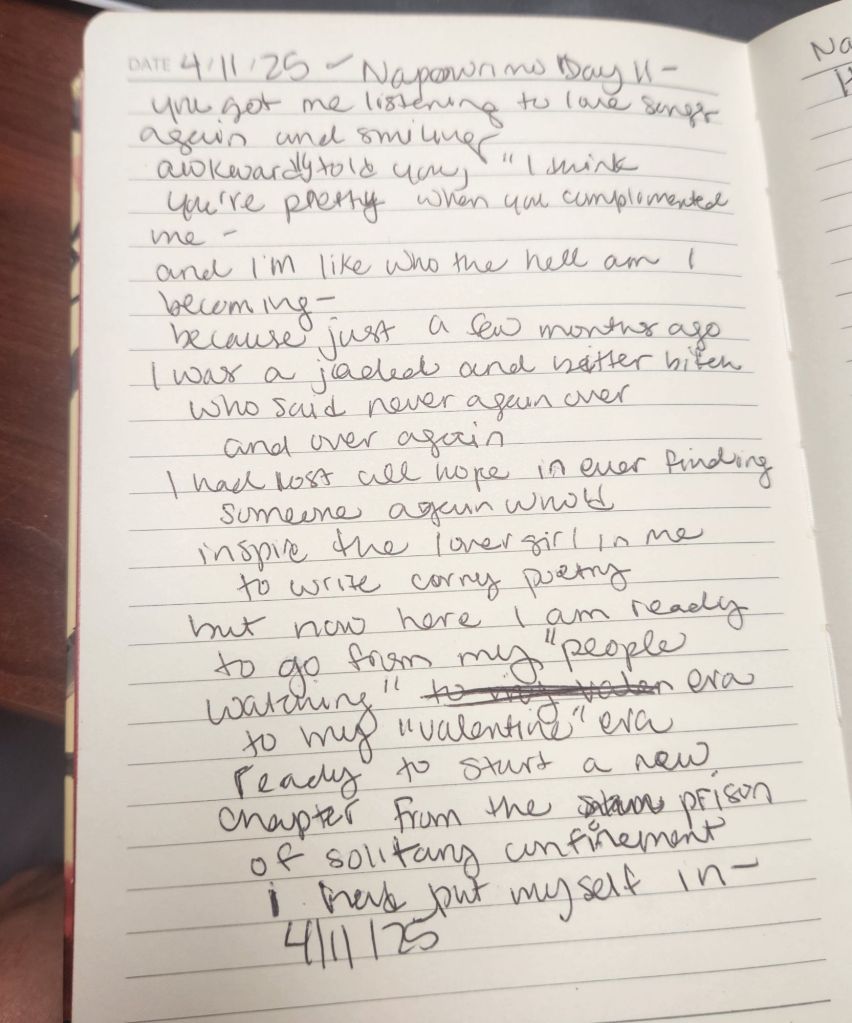 DATE 4/11/25 - Napowrimo Day 11-
you got me listening to love songs
again and smiling
awkwardly told you, "I think
you're pretty when you complomented
me -
and I'm like who the hell am I
becoming-
because just a few months ago
I was a jaded and bitter bitch
who said never again over
and over again
I had lost all hope in ever finding
someone again who'd
inspire the lover girl in me
to write corny poetry
but now here I am ready
to go from my "people
watching" to my valen era
to my "valentine" era
ready to start a new
chapter from the prison
of solitary confinement
i have put myself in-
4/11/25
Na